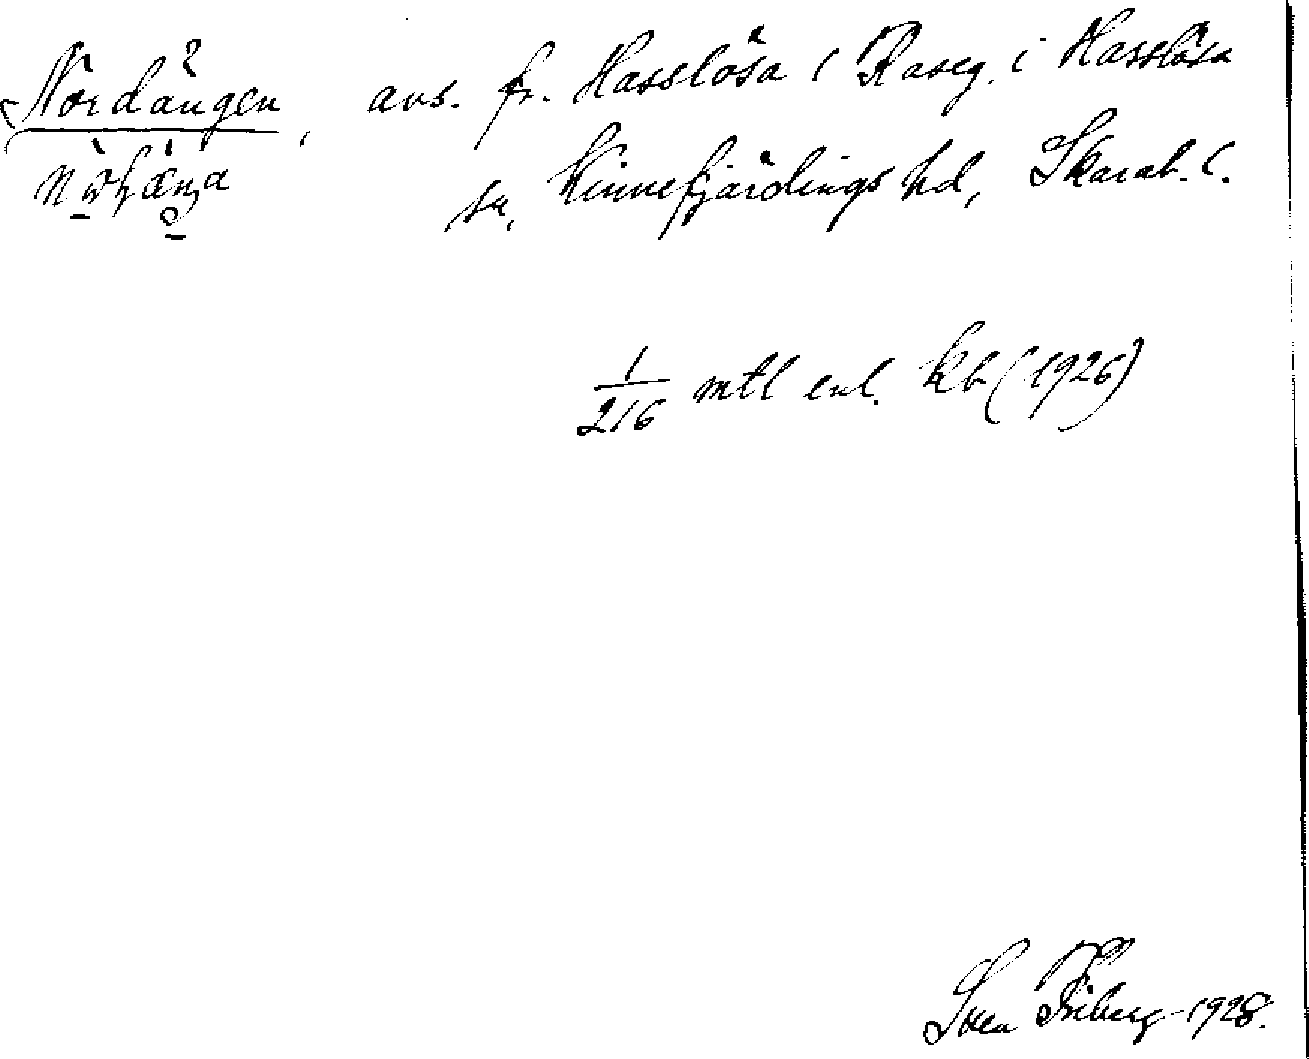 Nordängen, avs. fr. Hasslösa i Raseg. i Hasslösa
sn, Kinnefjärdings hd, Skarab. l.
1/216 mtl enl. kb (1926)
Sven Friberg 1928.